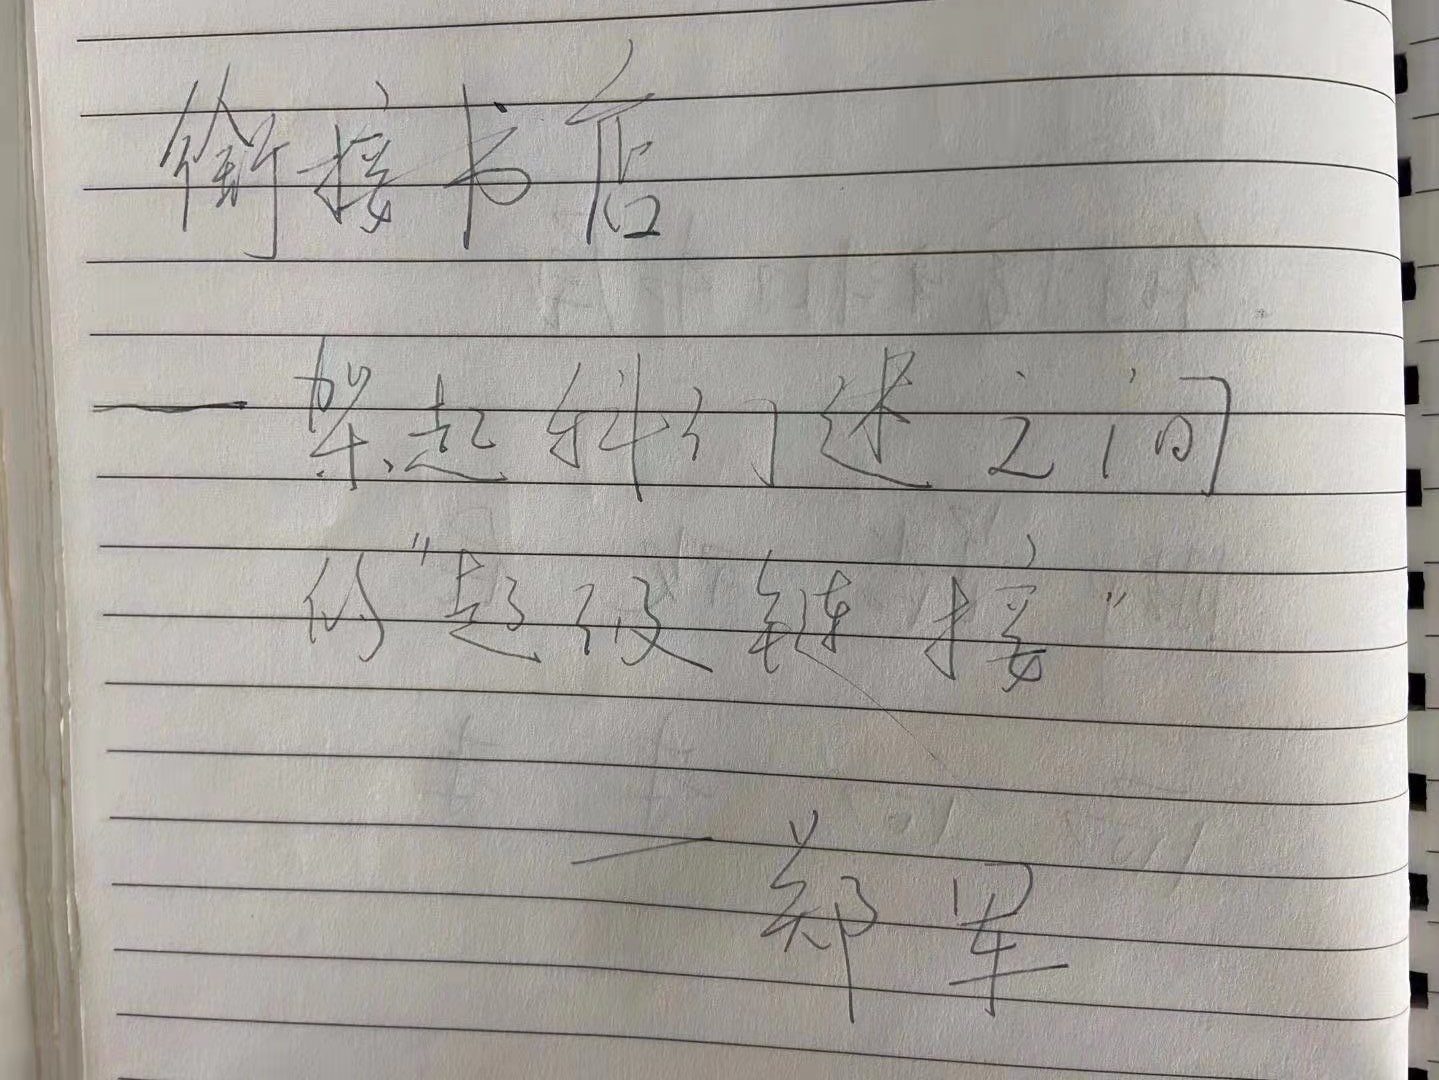 衔接书店
——架起科幻迷之间
的"超级链接"
——郑军